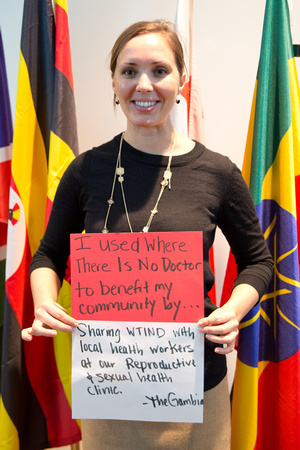 I Used Where
There Is No Doctor
to benefit my
community by...
Sharing WTIND with
local health workers
at our Reproductive
& sexual health
clinic.
-The Gambia